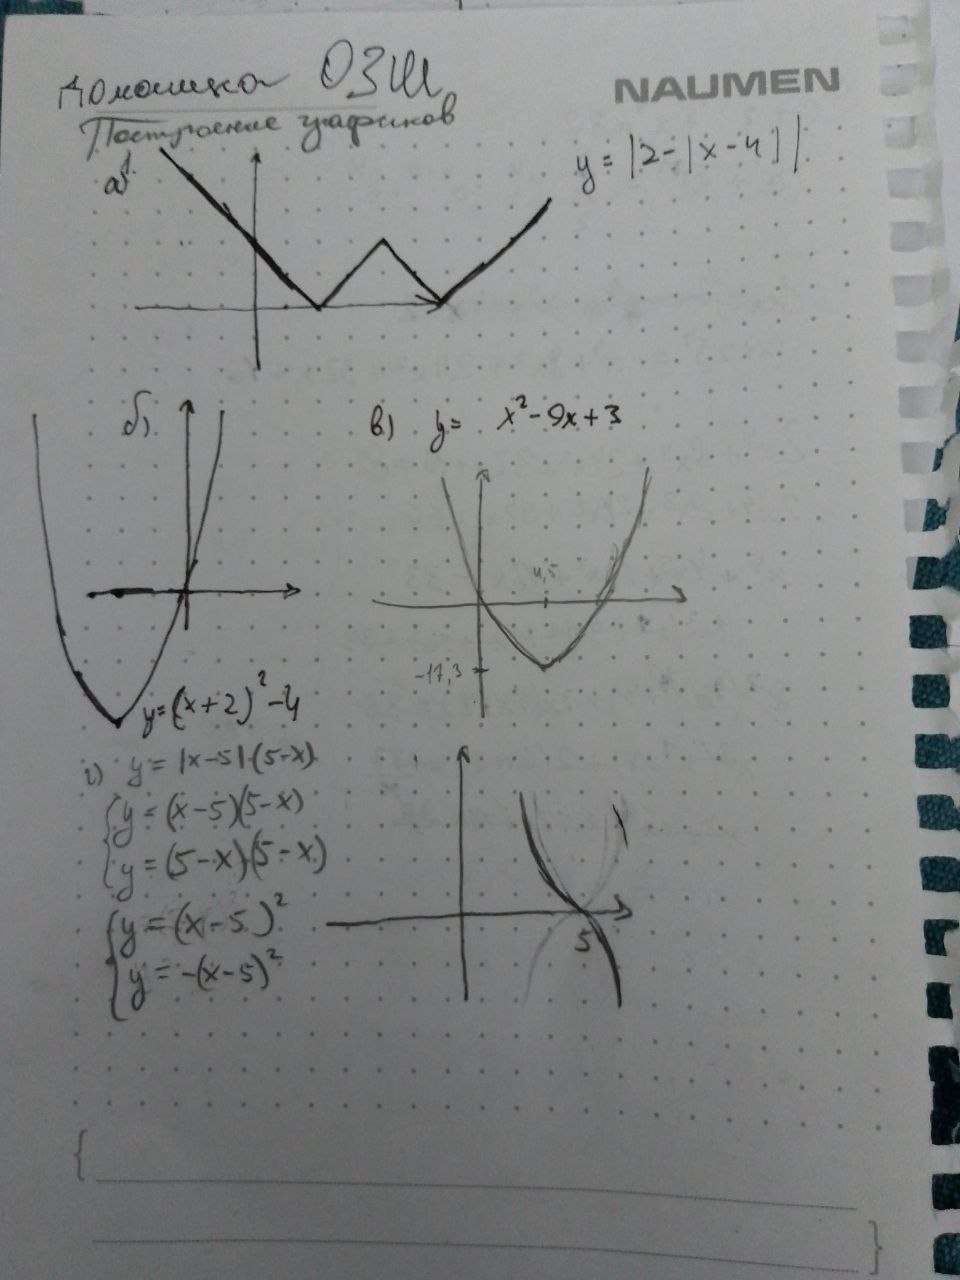 Домашка ОЗШ
NAUMEN
Построение графиков
а) y = |2-|x-4||
б)
в) y = x²-9x+3
4,5
-17,3
y=(x+2)²-4
г) y = |x-5|·(5-x)
{y = (x-5)(5-x)
{y = (5-x)·(5-x)
{y = (x-5)²
{y = -(x-5)²
5